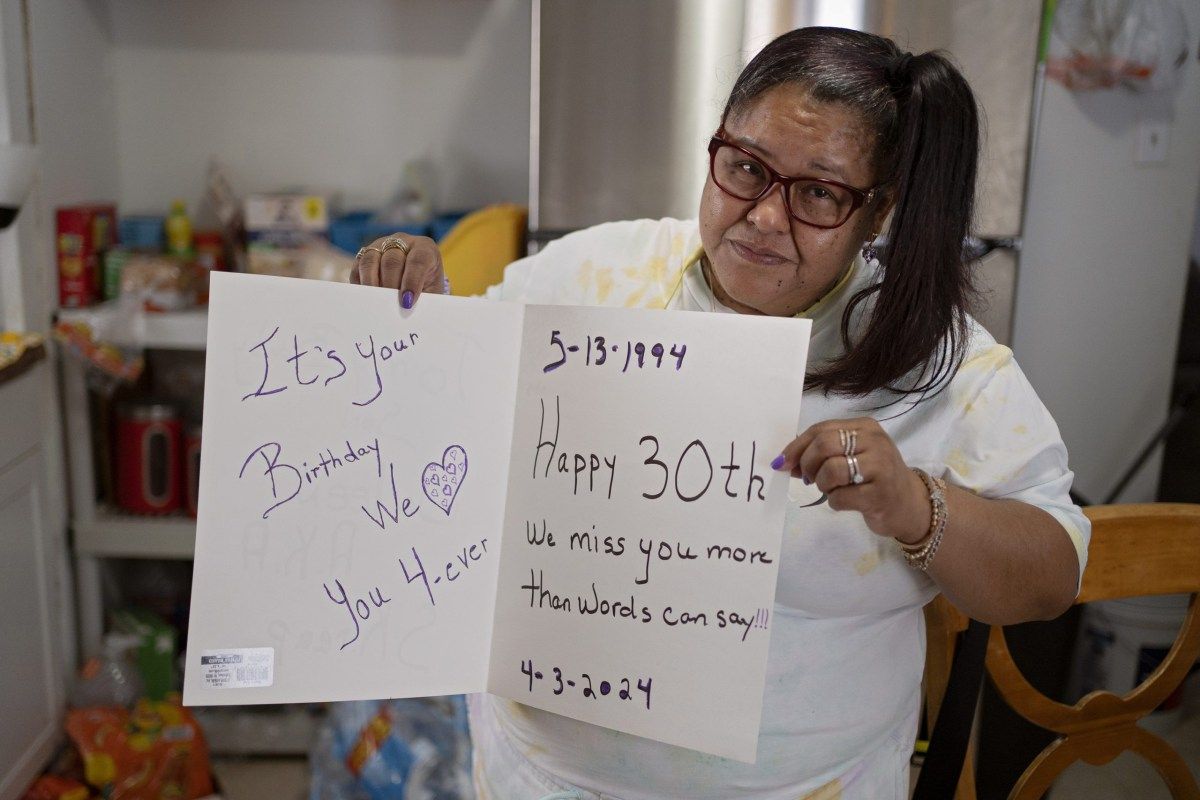 It's your
Birthday
We
You 4-ever
5-13-1994
Happy 30th
We miss you more
than words can say!!!
4-3-2024